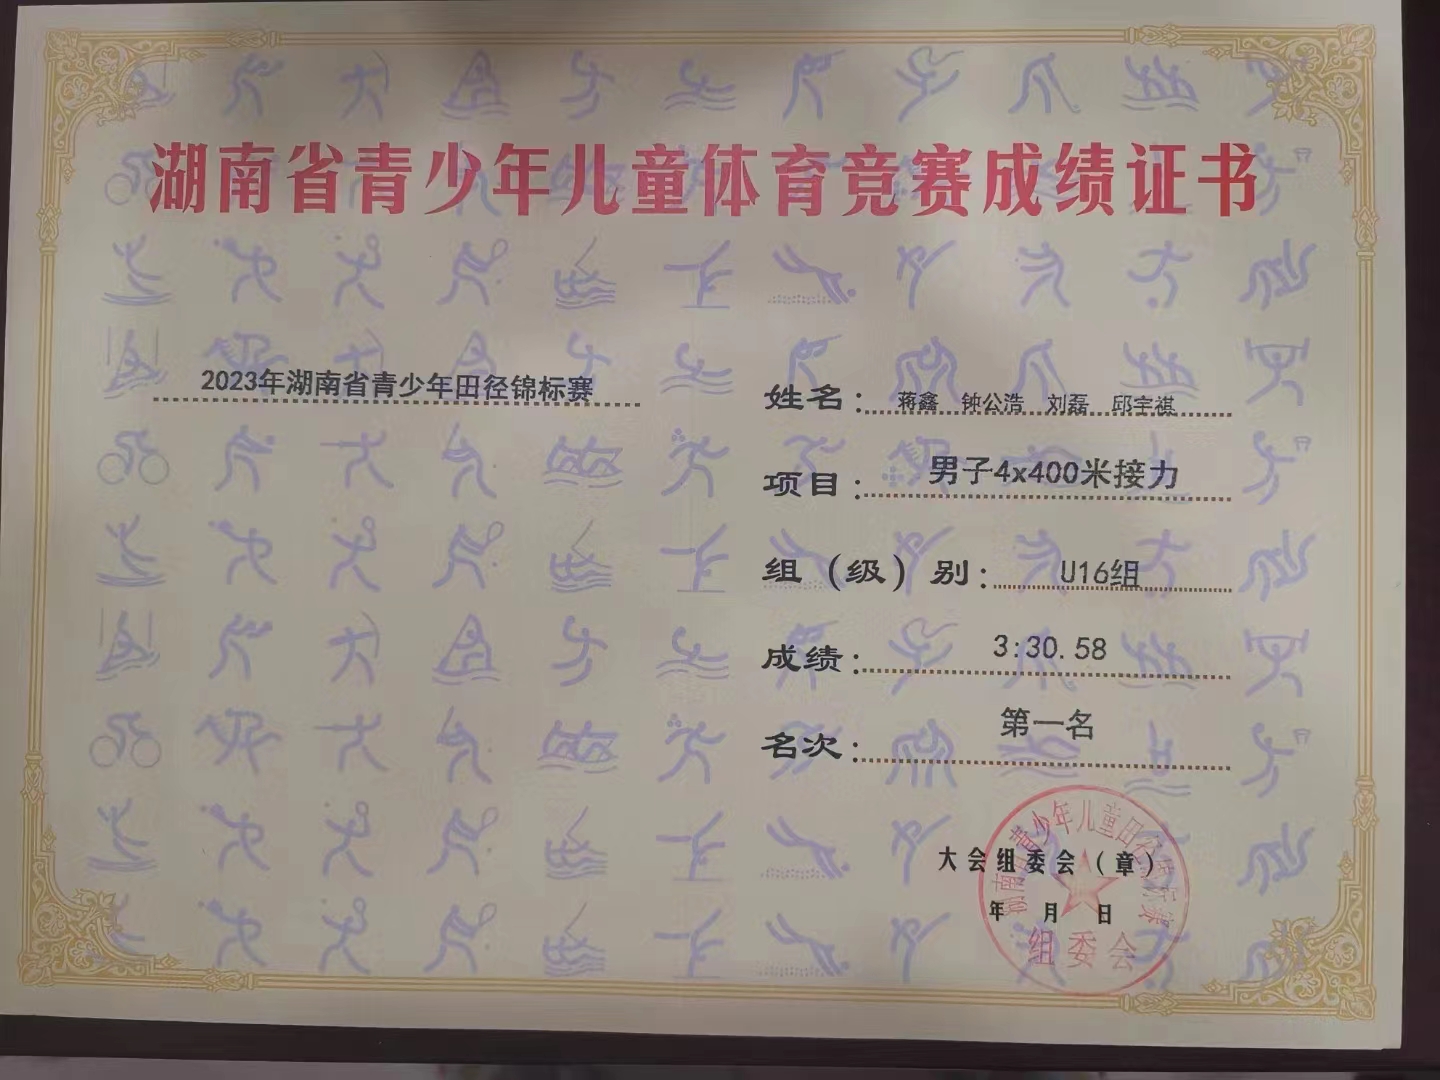 湖南省青少年儿童体育竞赛成绩证书
2023年湖南省青少年田径锦标赛
姓名：蒋鑫 钟公浩 刘磊 邱宇祺
项目：男子4x400米接力
组（级）别：U16组
成绩：3:30.58
名次：第一名
大会组委会（章）
年 月 日
湖南省青少年儿童田径锦标赛
组委会